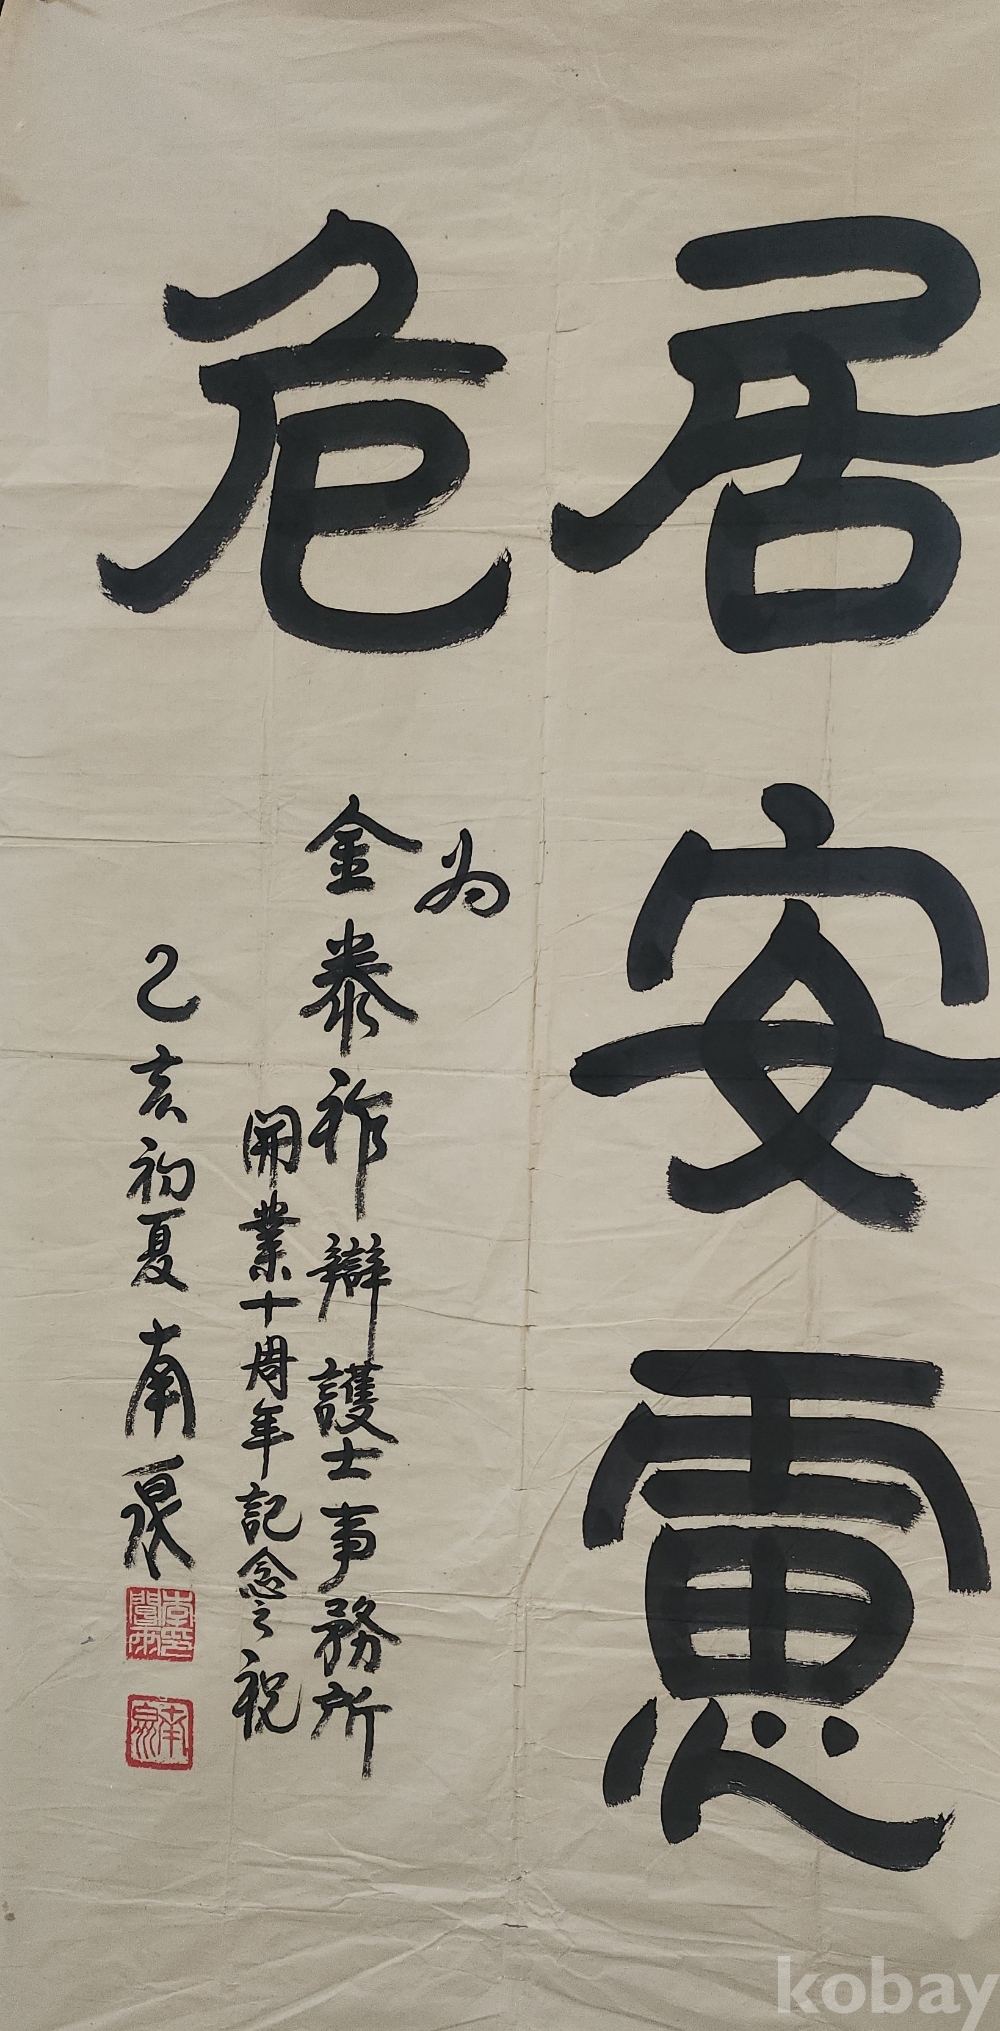 居安慮
危
為
金泰祚辯護士事務所
開業十周年記念之祝
乙亥初夏 南泉
kobay